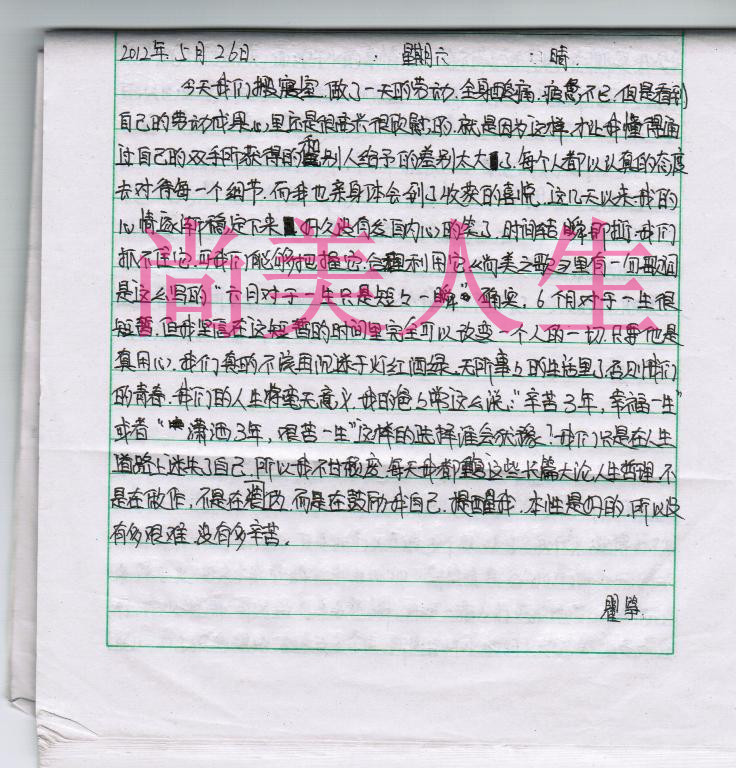 2012年5月26日. 星期六 : 晴.
今天我们搬寝室.做了一天的劳动.全身酸痛.疲惫不已.但是看到
自己的劳动成果心里还是很高兴很欣慰的.就是因为这样.才让我懂得通
过自己的双手所获得的和别人给予的差别太大了.每个人都以认真的态度
去对待每一个细节.而我也亲身体会到了收获的喜悦.这几天以来我的
心情逐渐稳定下来 好久没有发自内心的笑了.时间转瞬即逝.我们
抓不住它.可我们能够把握它.合理利用它《尚美之歌》里有一句歌词
是这么写的"六月对于一生只是短々一瞬"确实.6个月对于一生很
短暂.但我坚信在这短暂的时间里完全可以改变一个人的一切.只要他是
真用心.我们真的不该再沉迷于灯红酒绿.无所事々的生活里了否则我们
的青春.我们的人生将毫无意义.我的爸々常这么说:"辛苦3年,幸福一生"
或者"潇洒3年,艰苦一生"这样的选择谁会犹豫?我们只是在人生
道路上迷失了自己.所以我不甘 每天我都 这些长篇大论人生哲理.不
是在做作,不是在 而是在鼓励我自己.提醒我.本性是好的.所以没
有多艰难.没有多辛苦.
尚美人生